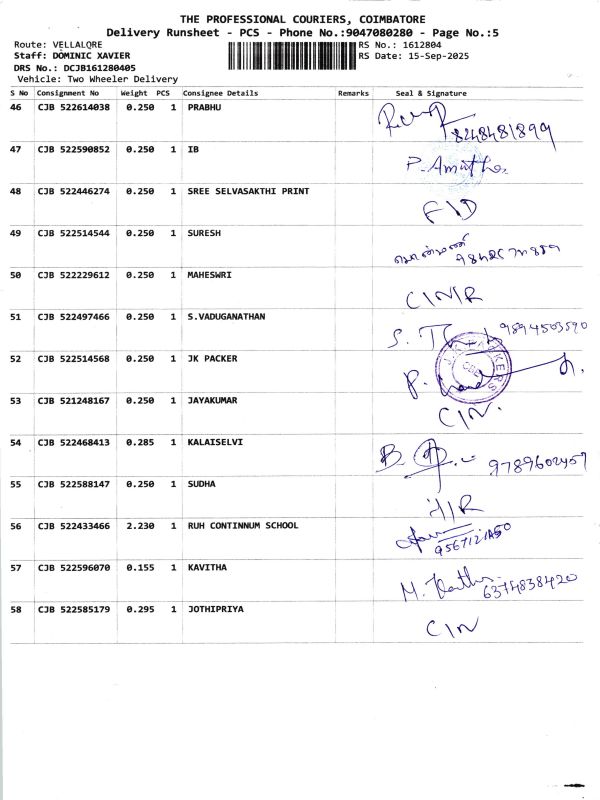 THE PROFESSIONAL COURIERS, COIMBATORE
Delivery Runsheet - PCS - Phone No.:9047080280 - Page No.:5
Route: VELLALORE RS No.: 1612804
Staff: DOMINIC XAVIER RS Date: 15-Sep-2025
DRS No.: DCJB161280405
Vehicle: Two Wheeler Delivery
S No Consignment No Weight PCS Consignee Details Remarks Seal & Signature
46 CJB 522614038 0.250 1 PRABHU
8248481899
47 CJB 522590852 0.250 1 IB P. Amutha
48 CJB 522446274 0.250 1 SREE SELVASAKTHI PRINT
F\D
49 CJB 522514544 0.250 1 SURESH
50 CJB 522229612 0.250 1 MAHESWRI
C\N\R
51 CJB 522497466 0.250 1 S.VADUGANATHAN
9894503590
52 CJB 522514568 0.250 1 JK PACKER
53 CJB 521248167 0.250 1 JAYAKUMAR
C\N.
54 CJB 522468413 0.285 1 KALAISELVI
B. 9789602457
55 CJB 522588147 0.250 1 SUDHA
56 CJB 522433466 2.230 1 RUH CONTINNUM SCHOOL
57 CJB 522596070 0.155 1 KAVITHA
M. 6374838420
58 CJB 522585179 0.295 1 JOTHIPRIYA
C\N